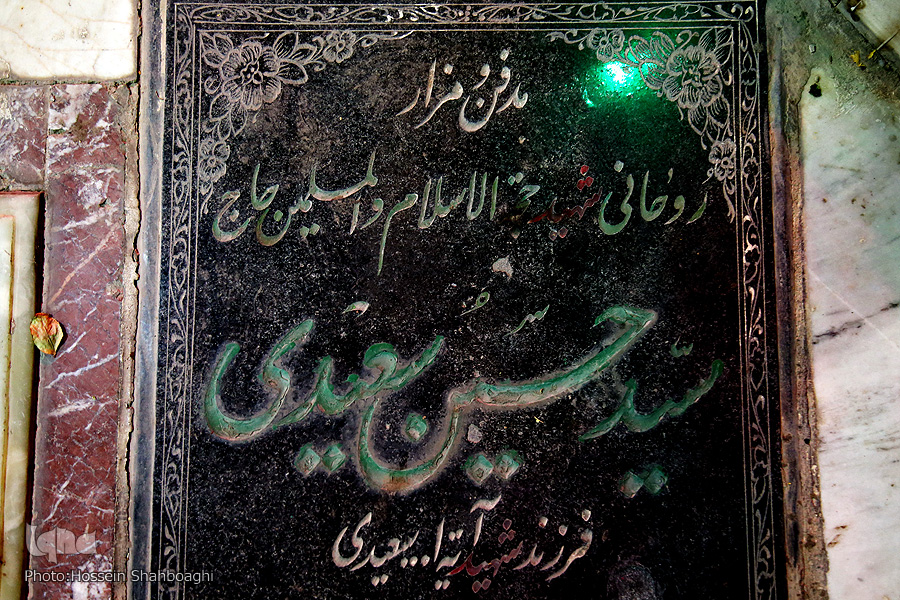 مدفن و مزار
روحانی شهید حجة الاسلام والمسلمین حاج
سیّد حسین سعیدی
فرزند شهید آیة ا... سعیدی
iqna
Photo:Hossein Shahboaghi